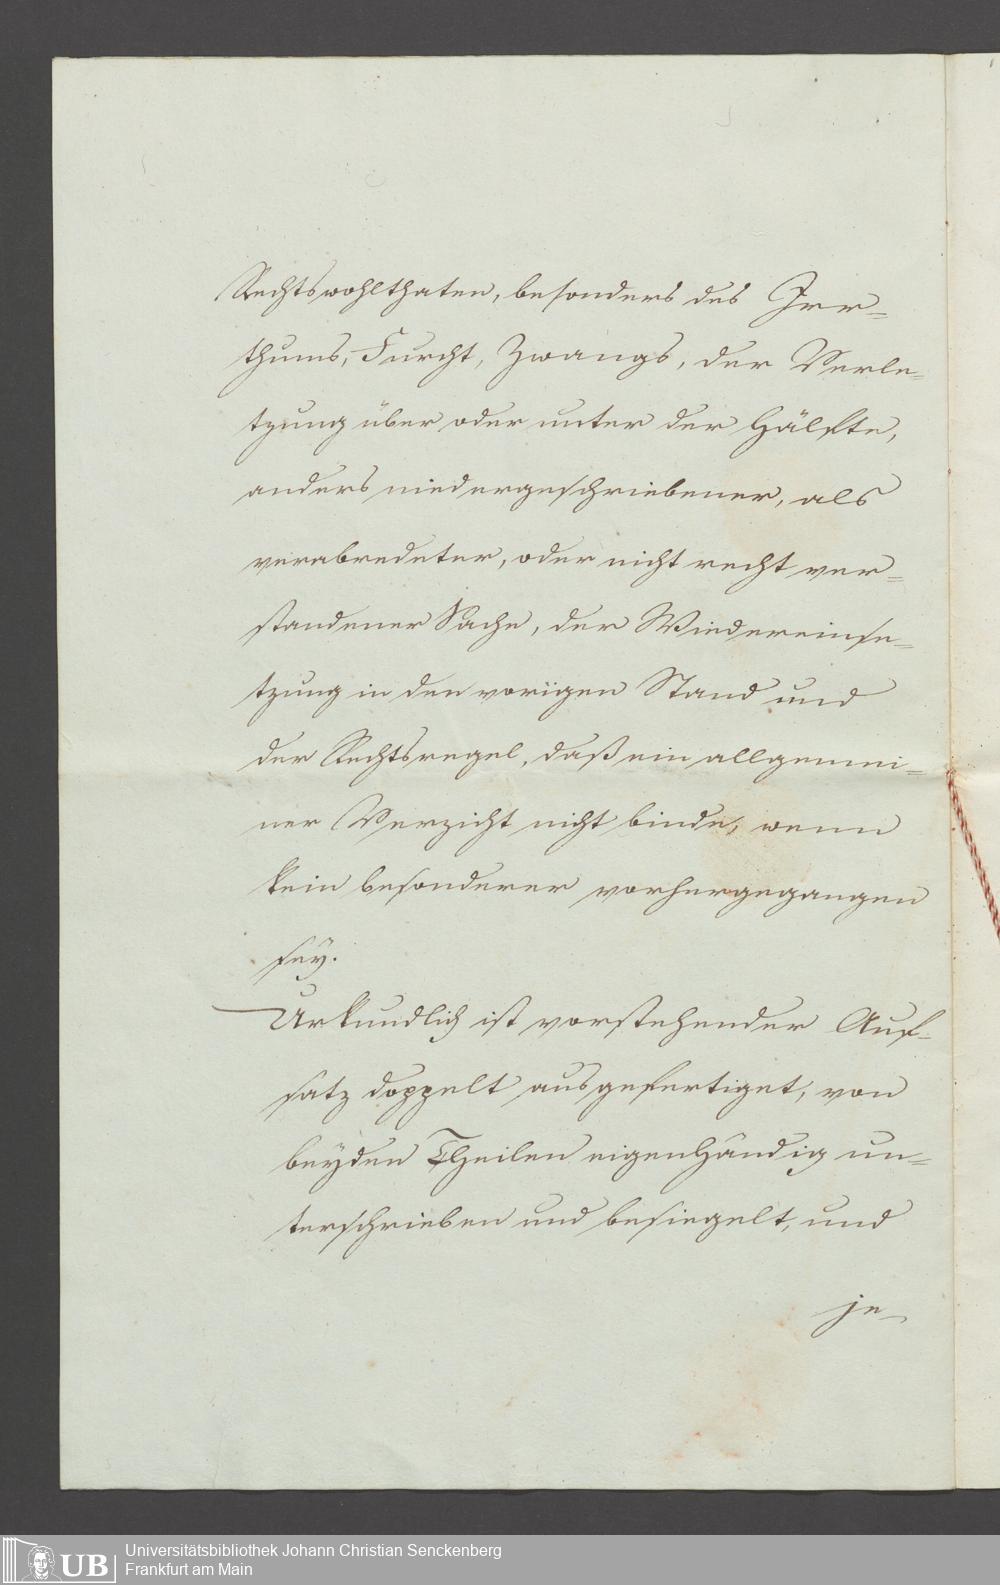 Rechtswohlthaten, besonders des Irr=
thums, Furcht, Zwangs, der Verle=
tzung über oder unter der Hälfte,
anders niedergeschriebener, als
verabredeter, oder nicht recht ver=
standener Sache, der Wiedereinse=
tzung in den vorigen Stand und
der Rechtsregel, daß ein allgemei=
ner Verzicht nicht binde, wenn
kein besonderer vorhergegangen
sey.
Urkundlich ist vorstehender Auf=
satz doppelt ausgefertiget, von
beyden Theilen eigenhändig un=
terschrieben und besiegelt, und
je
UB Universitätsbibliothek Johann Christian Senckenberg
Frankfurt am Main